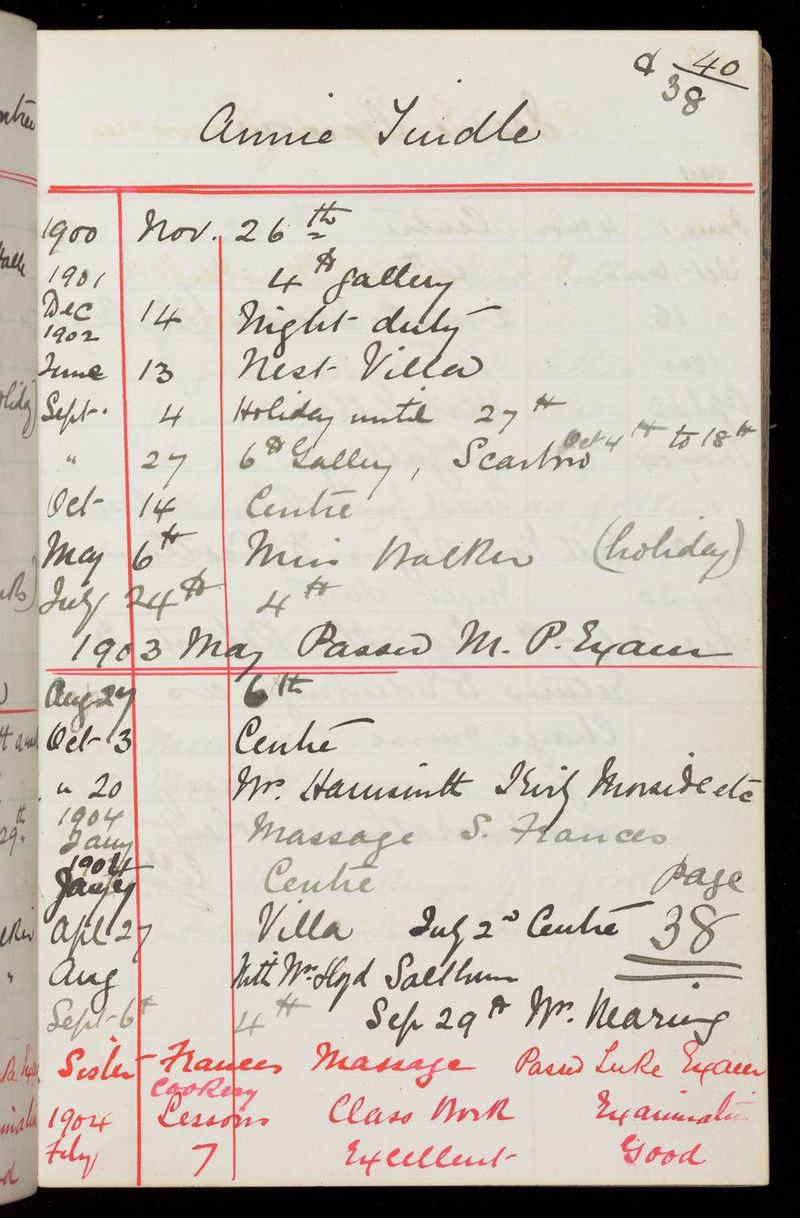 & 40
38
Annie Tindle
1900 Nov. 26th
1901 4th Gallery
Dec 14 Night duty
1902
June 13 West Villa
Sept. 4 Holiday until 27th
" 27 6th Gallery, Scarbro Oct 4th to 18th
Oct 14 Centre
May 6th Miss Walker (holiday)
July 24th 4th
1903 May Passed M. P. Exam
Aug 27 6th
Oct 3 Centre
" 20 Mr. etc
1904
Jany Massage S. Frances
1904
Centre Page
Apl 27 Villa July 2nd Centre 38
Aug With Mrs. Lloyd
Sept 6th 4th Sep 29th Mr. Wearing
Sister Frances Massage Passed Exam
Cookery
1904 Lessons Class Work Examination
7 Excellent Good